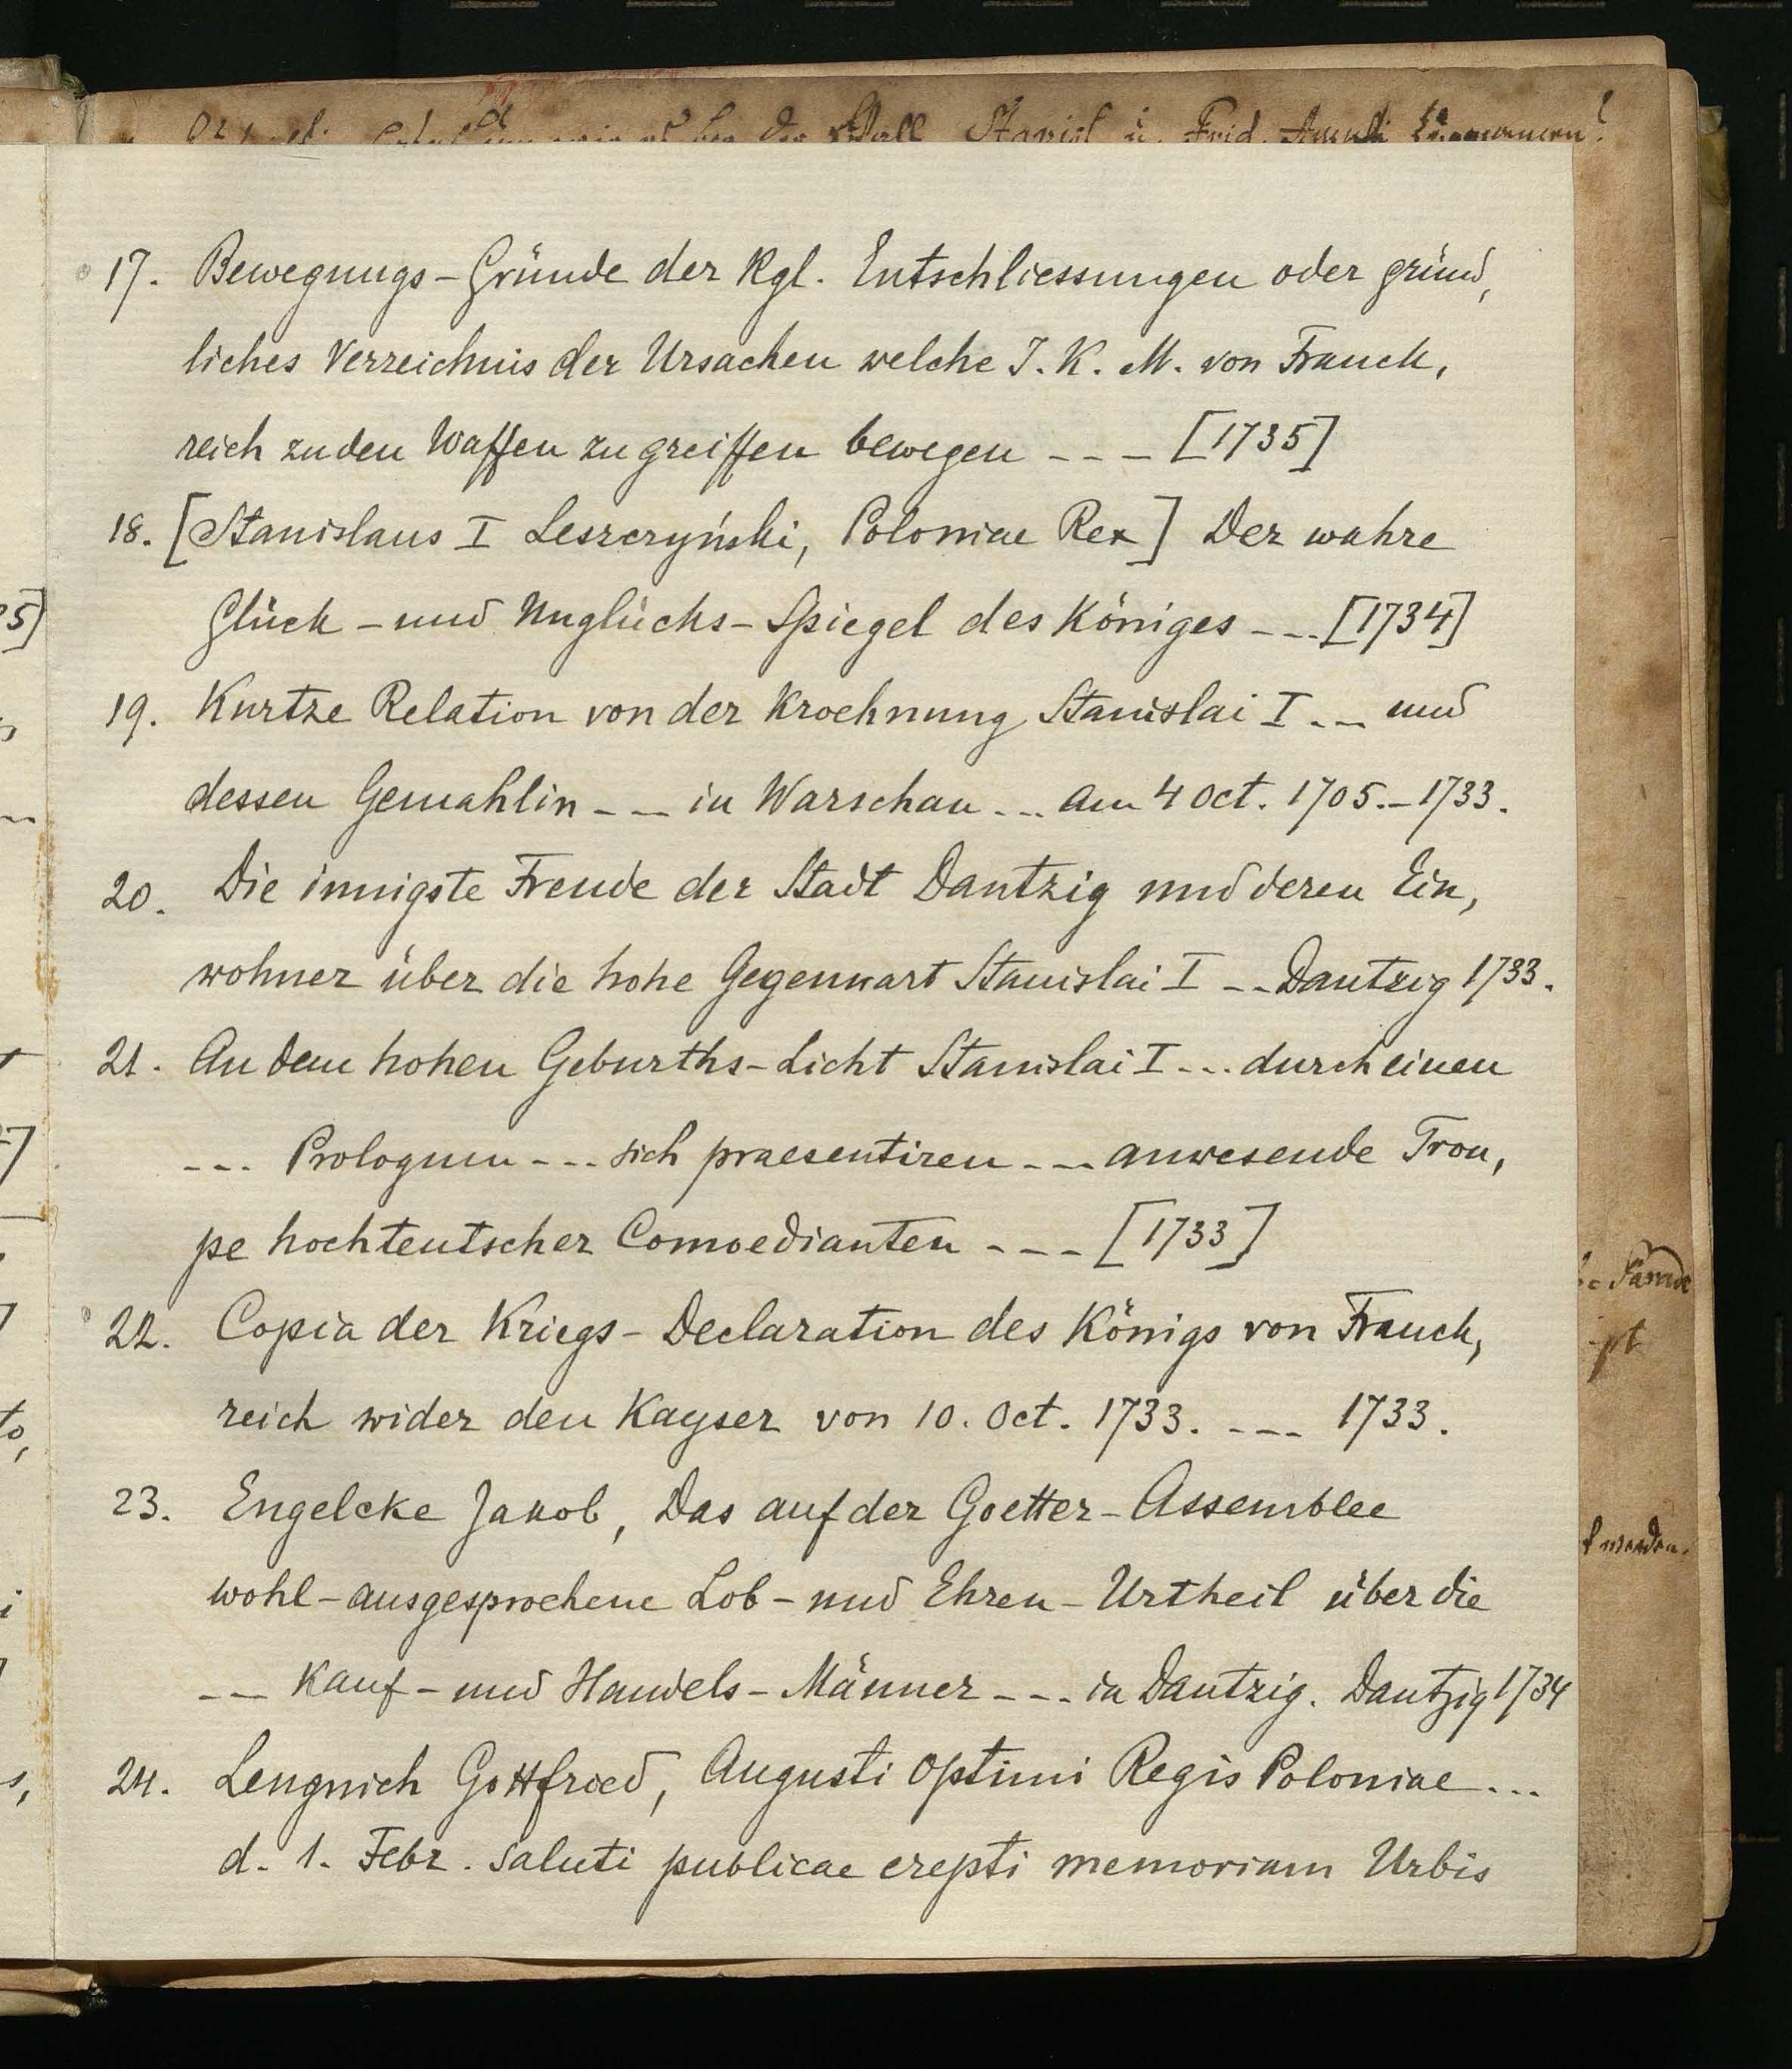 Stanisl u. Frid.
17. Bewegungs-Gründe der Kgl. Entschliessungen oder gründ,
liches Verzeichnis der Ursachen welche I. K. M. von Franck,
reich zu den Waffen zu greiffen bewegen --- [1735]
18. [Stanislaus I Leszczyński, Poloniae Rex] Der wahre
Glück - und Unglücks-Spiegel des Königes --- [1734]
19. Kurtze Relation von der Kroehnung Stanislai I -- und
dessen Gemahlin --- in Warschau ... am 4 Oct. 1705. - 1733.
20. Die innigste Freude der Stadt Dantzig und deren Ein,
wohner über die hohe Gegenwart Stanislai I -- Dantzig 1733.
21. An dem hohen Geburths-Licht Stanislai I ... durch einen
--- Prologum --- sich praesentiren --- anwesende Trou,
pe hochteutscher Comoedianten --- [1733]
22. Copia der Kriegs-Declaration des Königs von Franck,
reich wider den Kayser von 10. Oct. 1733. --- 1733.
23. Engelcke Jakob, Das auf der Goetter-Assemblee
wohl-ausgesprochene Lob- und Ehren-Urtheil über die
-- Kauf- und Handels-Männer --- in Dantzig. Dantzig 1734
24. Lengnich Gottfried, Augusti Optimi Regis Poloniae ...
d. 1. Febr. saluti publicae erepti memoriam Urbis